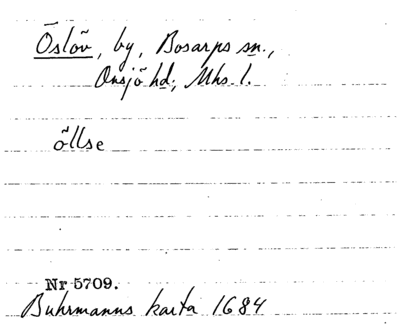 Öslöv, by, Bosarps sn.,
Onsjö hd; Mhs. l.
öllse
Nr 5709.
Buhrmanns karta 1684